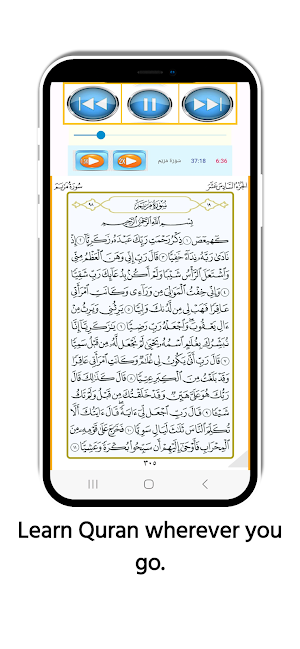 سورة مريم 37:18 6:36
الجزء السادس عشر سورة مريم
سورة مريم
بسم الله الرحمن الرحيم
كهيعص ١ ذكر رحمت ربك عبده زكريا ٢ إذ
نادى ربه نداء خفيا ٣ قال رب إني وهن العظم مني
واشتعل الرأس شيبا ولم أكن بدعائك رب شقيا
٤ وإني خفت الموالي من وراءي وكانت امرأتي
عاقرا فهب لي من لدنك وليا ٥ يرثني ويرث من
ءال يعقوب واجعله رب رضيا ٦ يزكريا إنا
نبشرك بغلم اسمه يحيى لم نجعل له من قبل سميا
٧ قال رب أنى يكون لي غلم وكانت امرأتي عاقرا
وقد بلغت من الكبر عتيا ٨ قال كذلك قال
ربك هو علي هين وقد خلقتك من قبل ولم تك
شيئا ٩ قال رب اجعل لي ءاية قال ءايتك ألا
تكلم الناس ثلث ليال سويا ١٠ فخرج على قومه من
المحراب فأوحى إليهم أن سبحوا بكرة وعشيا ١١
٣٠٥
Learn Quran wherever you
go.